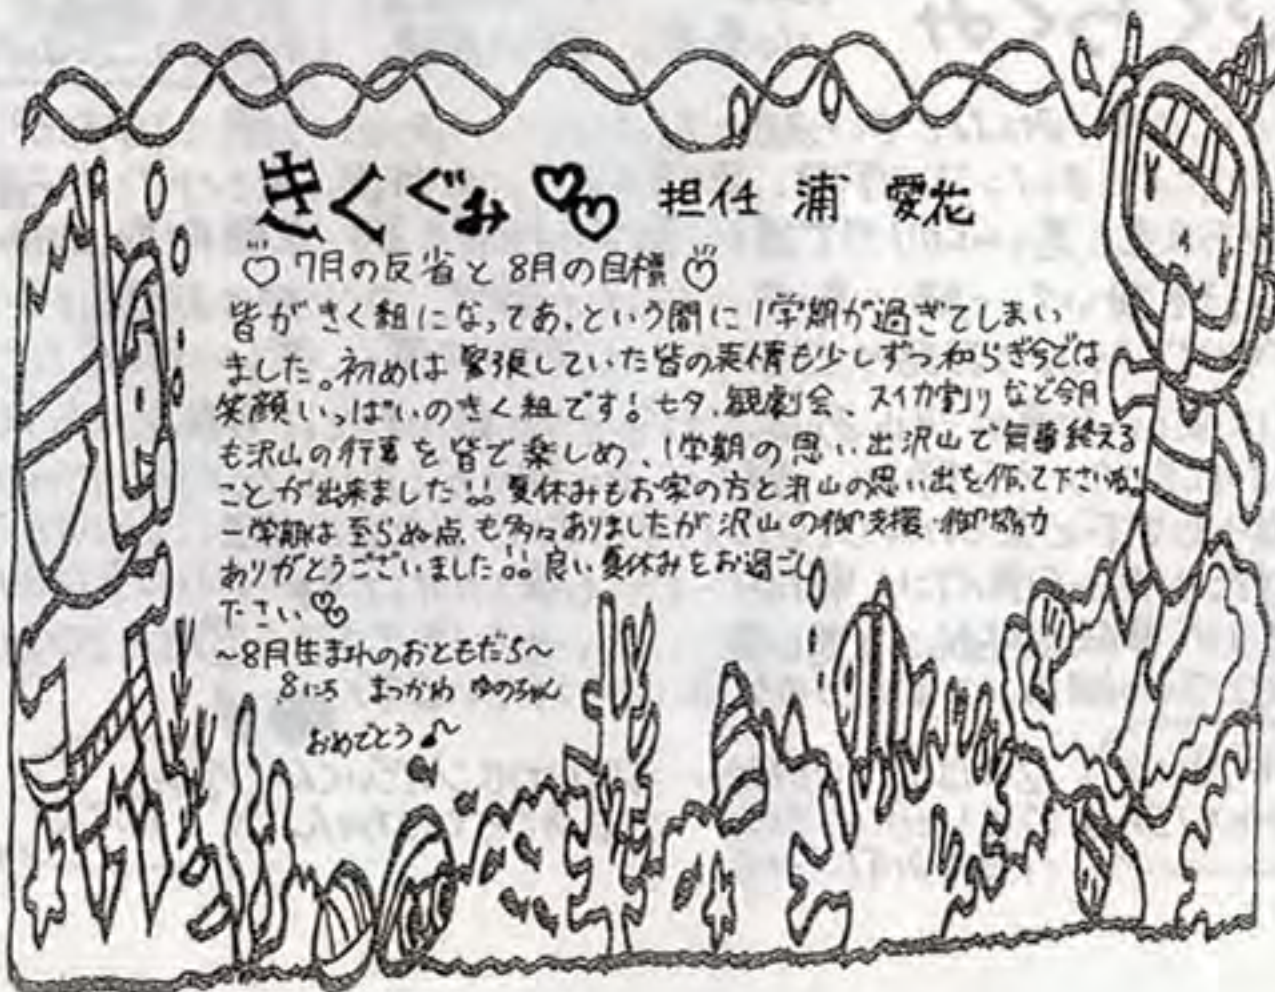 きくぐみ 担任 浦 愛花
♡ 7月の反省と8月の目標 ♡
皆がきく組になってあっという間に1学期が過ぎてしまい
ました。初めは緊張していた皆の表情も少しずつ和らぎ今では
笑顔いっぱいのきく組です！七夕、観劇会、スイカ割りなど今月
も沢山の行事を皆で楽しめ、1学期の思い出沢山で無事終える
ことが出来ました!! 夏休みもお家の方と沢山の思い出を作って下さいね!
一学期は至らぬ点も多々ありましたが沢山の御支援・御協力
ありがとうございました!! 良い夏休みをお過ごし
下さい♡
～8月生まれのおともだち～
8にち まつかわ ゆのちゃん
おめでとう♪